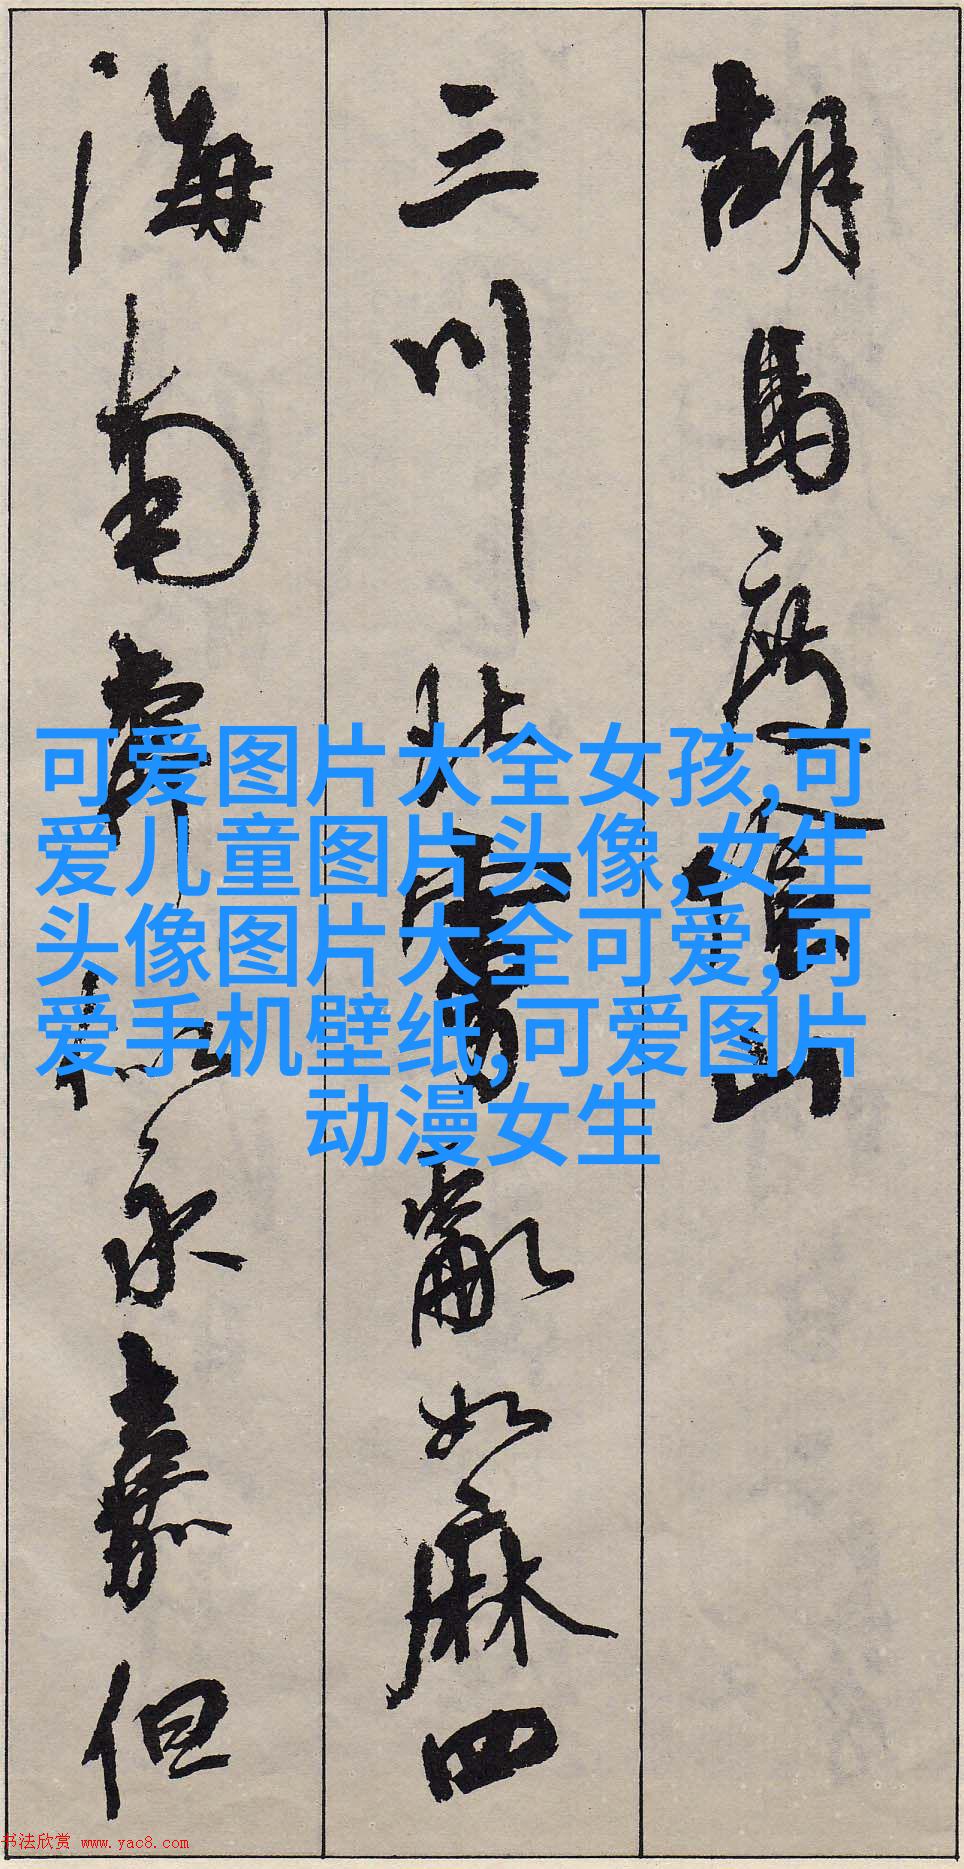 胡馬度陰山
三川北虜亂如麻四
海南奔似永嘉但
可爱图片大全女孩,可
爱儿童图片头像,女生
头像图片大全可爱,可
爱手机壁纸,可爱图片
动漫女生
书法欣赏 www.yac8.com